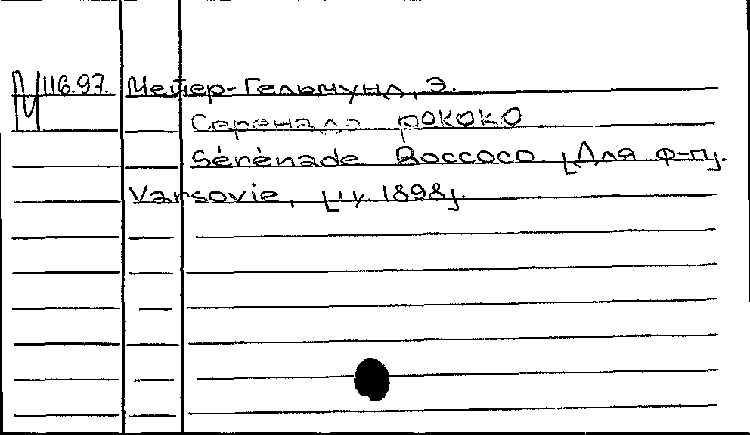 М 116.97. Мейер-Гельмунд, Э.
Серенада рококо
Sérénade Roccoco. [Для ф-п].
Varsovie, [ц. 1898].